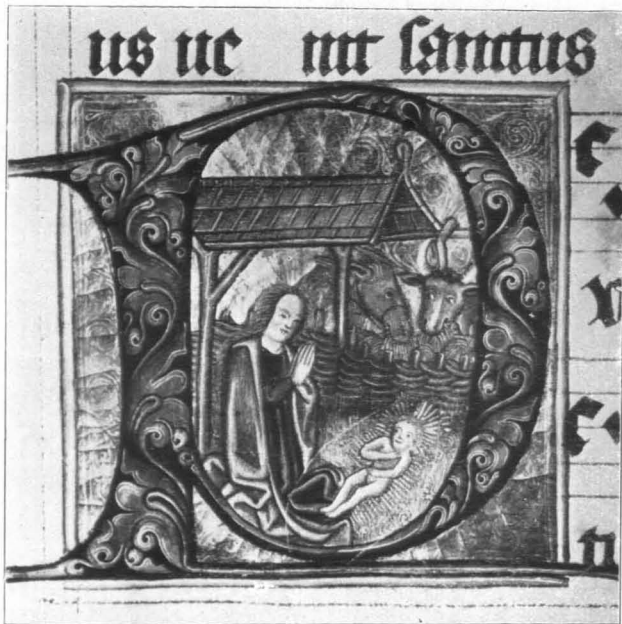 us ue nit sanctus